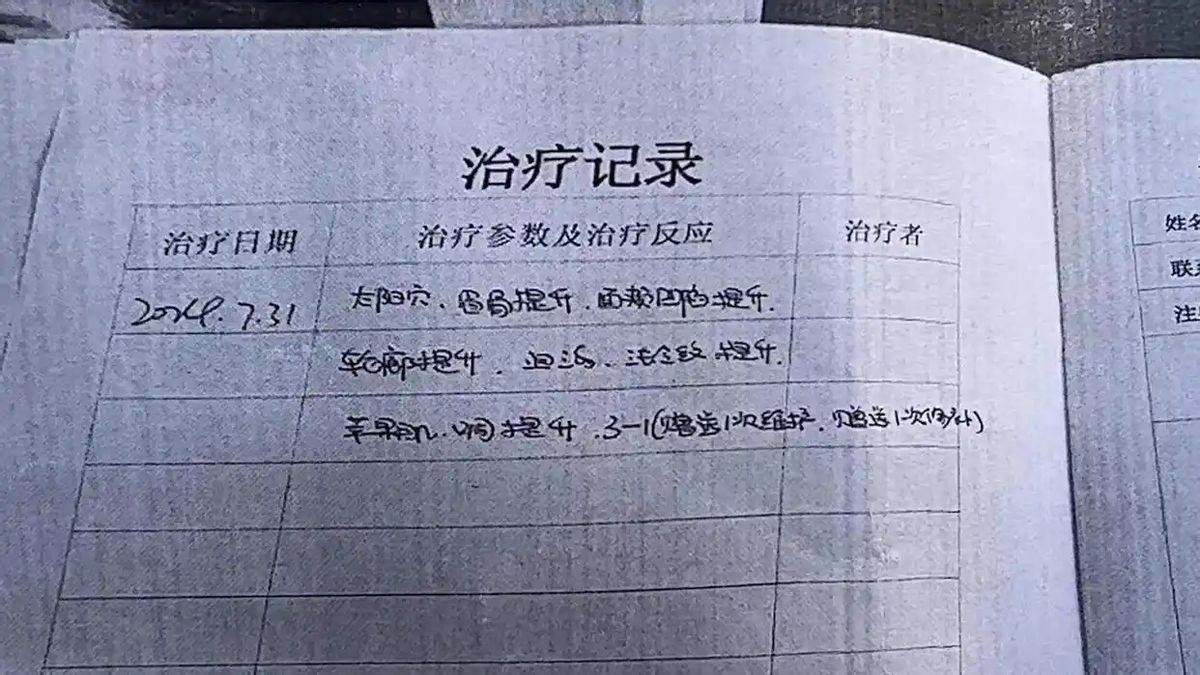 治疗记录
治疗日期 治疗参数及治疗反应 治疗者
2024.7.31 太阳穴、眉弓提升、面颊凹陷提升.
轮廓提升、泪沟、法令纹提升.
苹果肌、唇提升.3-1(赠送1次维护,赠送1次修补)
姓名
联系
注